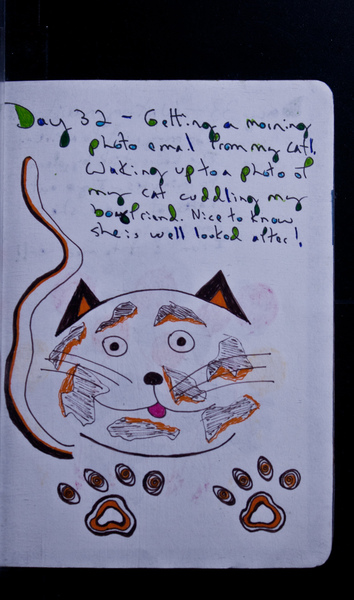 Day 32 - Getting a morning
photo email from my cat!
Waking up to a photo of
my cat cuddling my
boyfriend. Nice to know
she is well looked after!